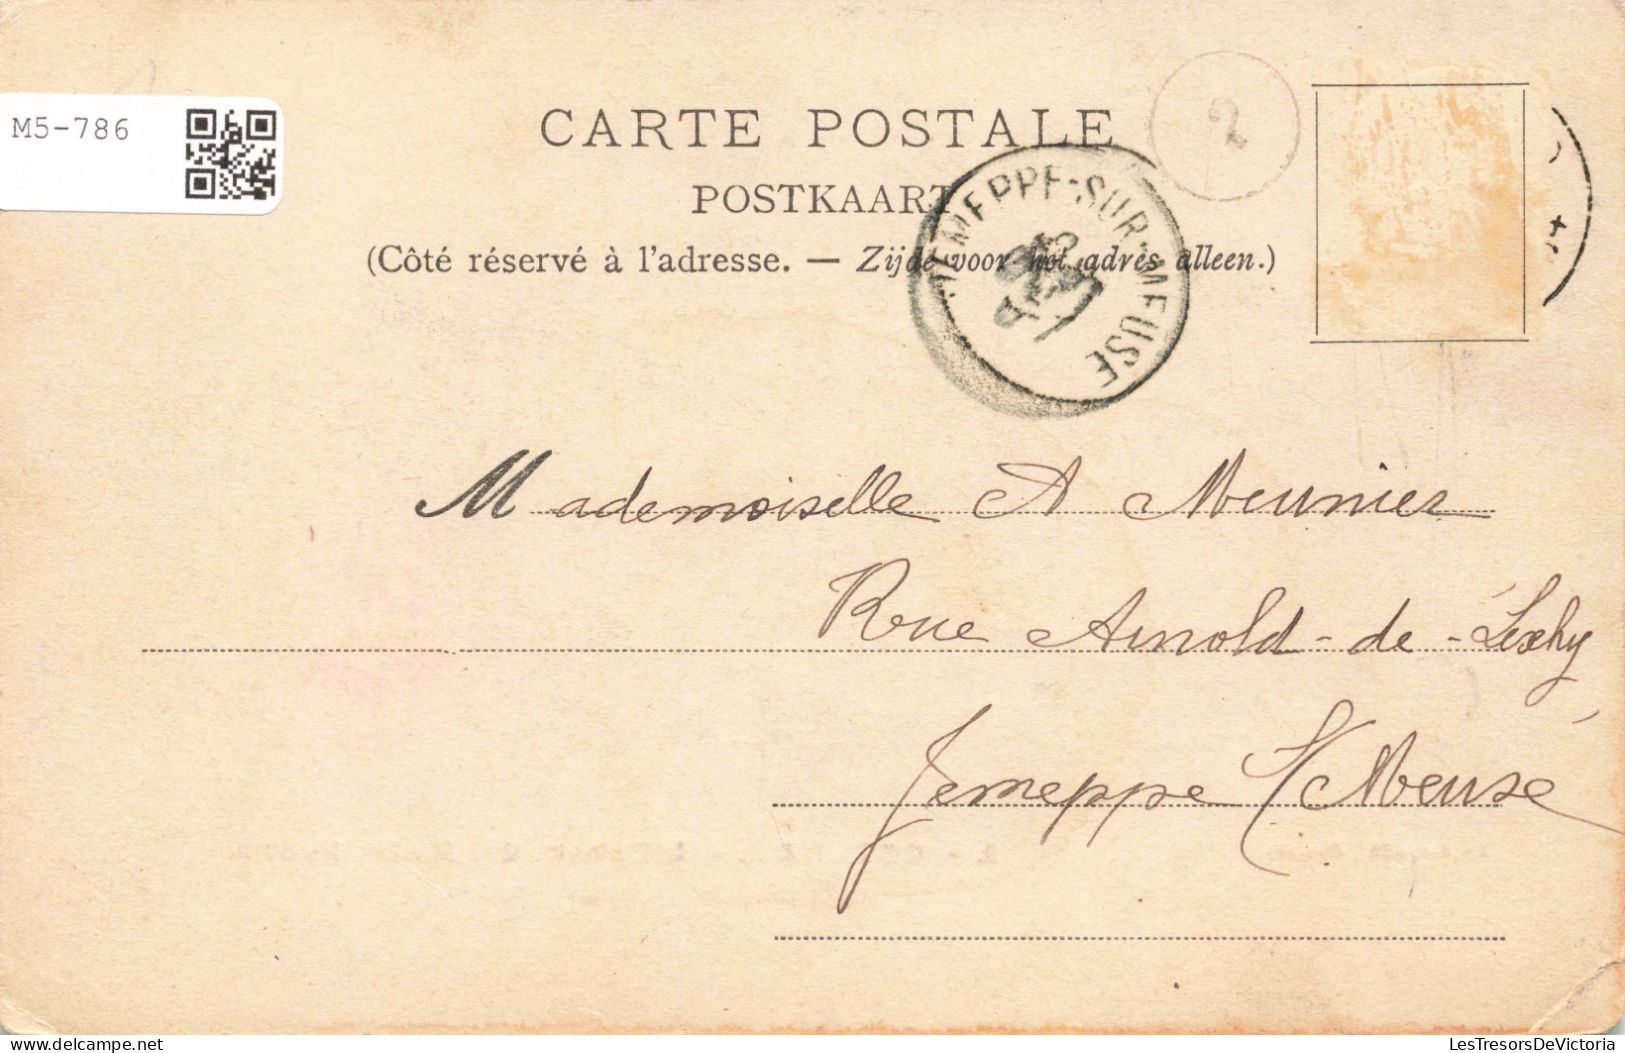 M5-786
2
CARTE POSTALE
POSTKAART
(Côté réservé à l'adresse. — Zijde voor het adres alleen.)
JEMEPPE-SUR-MEUSE
Mademoiselle A Meunier
Rue Arnold-de-Lexhy
Jemeppe s/Meuse
www.delcampe.net
LesTresorsDeVictoria